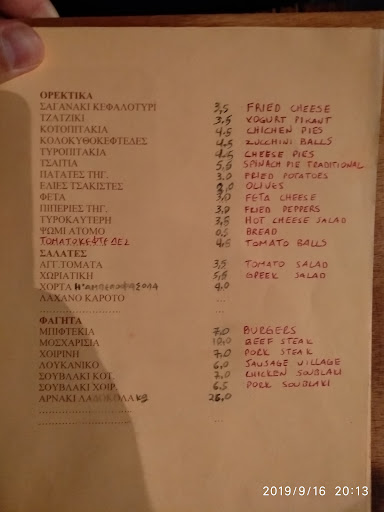 ΟΡΕΚΤΙΚΑ
ΣΑΓΑΝΑΚΙ ΚΕΦΑΛΟΤΥΡΙ 3,5 FRIED CHEESE
ΤΖΑΤΖΙΚΙ 3.5 YOGURT PIKANT
ΚΟΤΟΠΙΤΑΚΙΑ 4.5 CHICHEN PIES
ΚΟΛΟΚΥΘΟΚΕΦΤΕΔΕΣ 4.5 ZUCCHINI BALLS
ΤΥΡΟΠΙΤΑΚΙΑ 4.5 CHEESE PIES
ΤΣΑΙΤΙΑ 5.5 SPINACH PIE TRADITIONAL
ΠΑΤΑΤΕΣ ΤΗΓ. 3.0 FRIED POTATOES
ΕΛΙΕΣ ΤΣΑΚΙΣΤΕΣ OLIVES
ΦΕΤΑ 3,0 FETA CHEESE
ΠΙΠΕΡΙΕΣ ΤΗΓ. 3.0 FRIED PEPPERS
ΤΥΡΟΚΑΥΤΕΡΗ 3,5 HOT CHEESE SALAD
ΨΩΜΙ ΑΤΟΜΟ 0,5 BREAD
ΤΟΜΑΤΟΚΕΦΤΕΔΕΣ 4.5 TOMATO BALLS
ΣΑΛΑΤΕΣ
ΑΓΓ.ΤΟΜΑΤΑ 3,5 TOMATO SALAD
ΧΩΡΙΑΤΙΚΗ 5,5 GREEK SALAD
ΧΟΡΤΑ Η ΑΜΠΕΛΟΦΑΣΟΛΑ 4.0
ΛΑΧΑΝΟ ΚΑΡΟΤΟ ....
........................... ....
ΦΑΓΗΤΑ
ΜΠΙΦΤΕΚΙΑ 7.0 BURGERS
ΜΟΣΧΑΡΙΣΙΑ 10,0 BEEF STEAK
ΧΟΙΡΙΝΗ 7.0 PORK STEAK
ΛΟΥΚΑΝΙΚΟ 6,0 SAUSAGE VILLAGE
ΣΟΥΒΛΑΚΙ ΚΟΤ. 7.0 CHICKEN SOUBLAKI
ΣΟΥΒΛΑΚΙ ΧΟΙΡ. 6.5 PORK SOUBLAKI
ΑΡΝΑΚΙ ΛΑΔΟΚΟΛΑ 26.0
........................... ....
........................... ....
2019/9/16 20:13